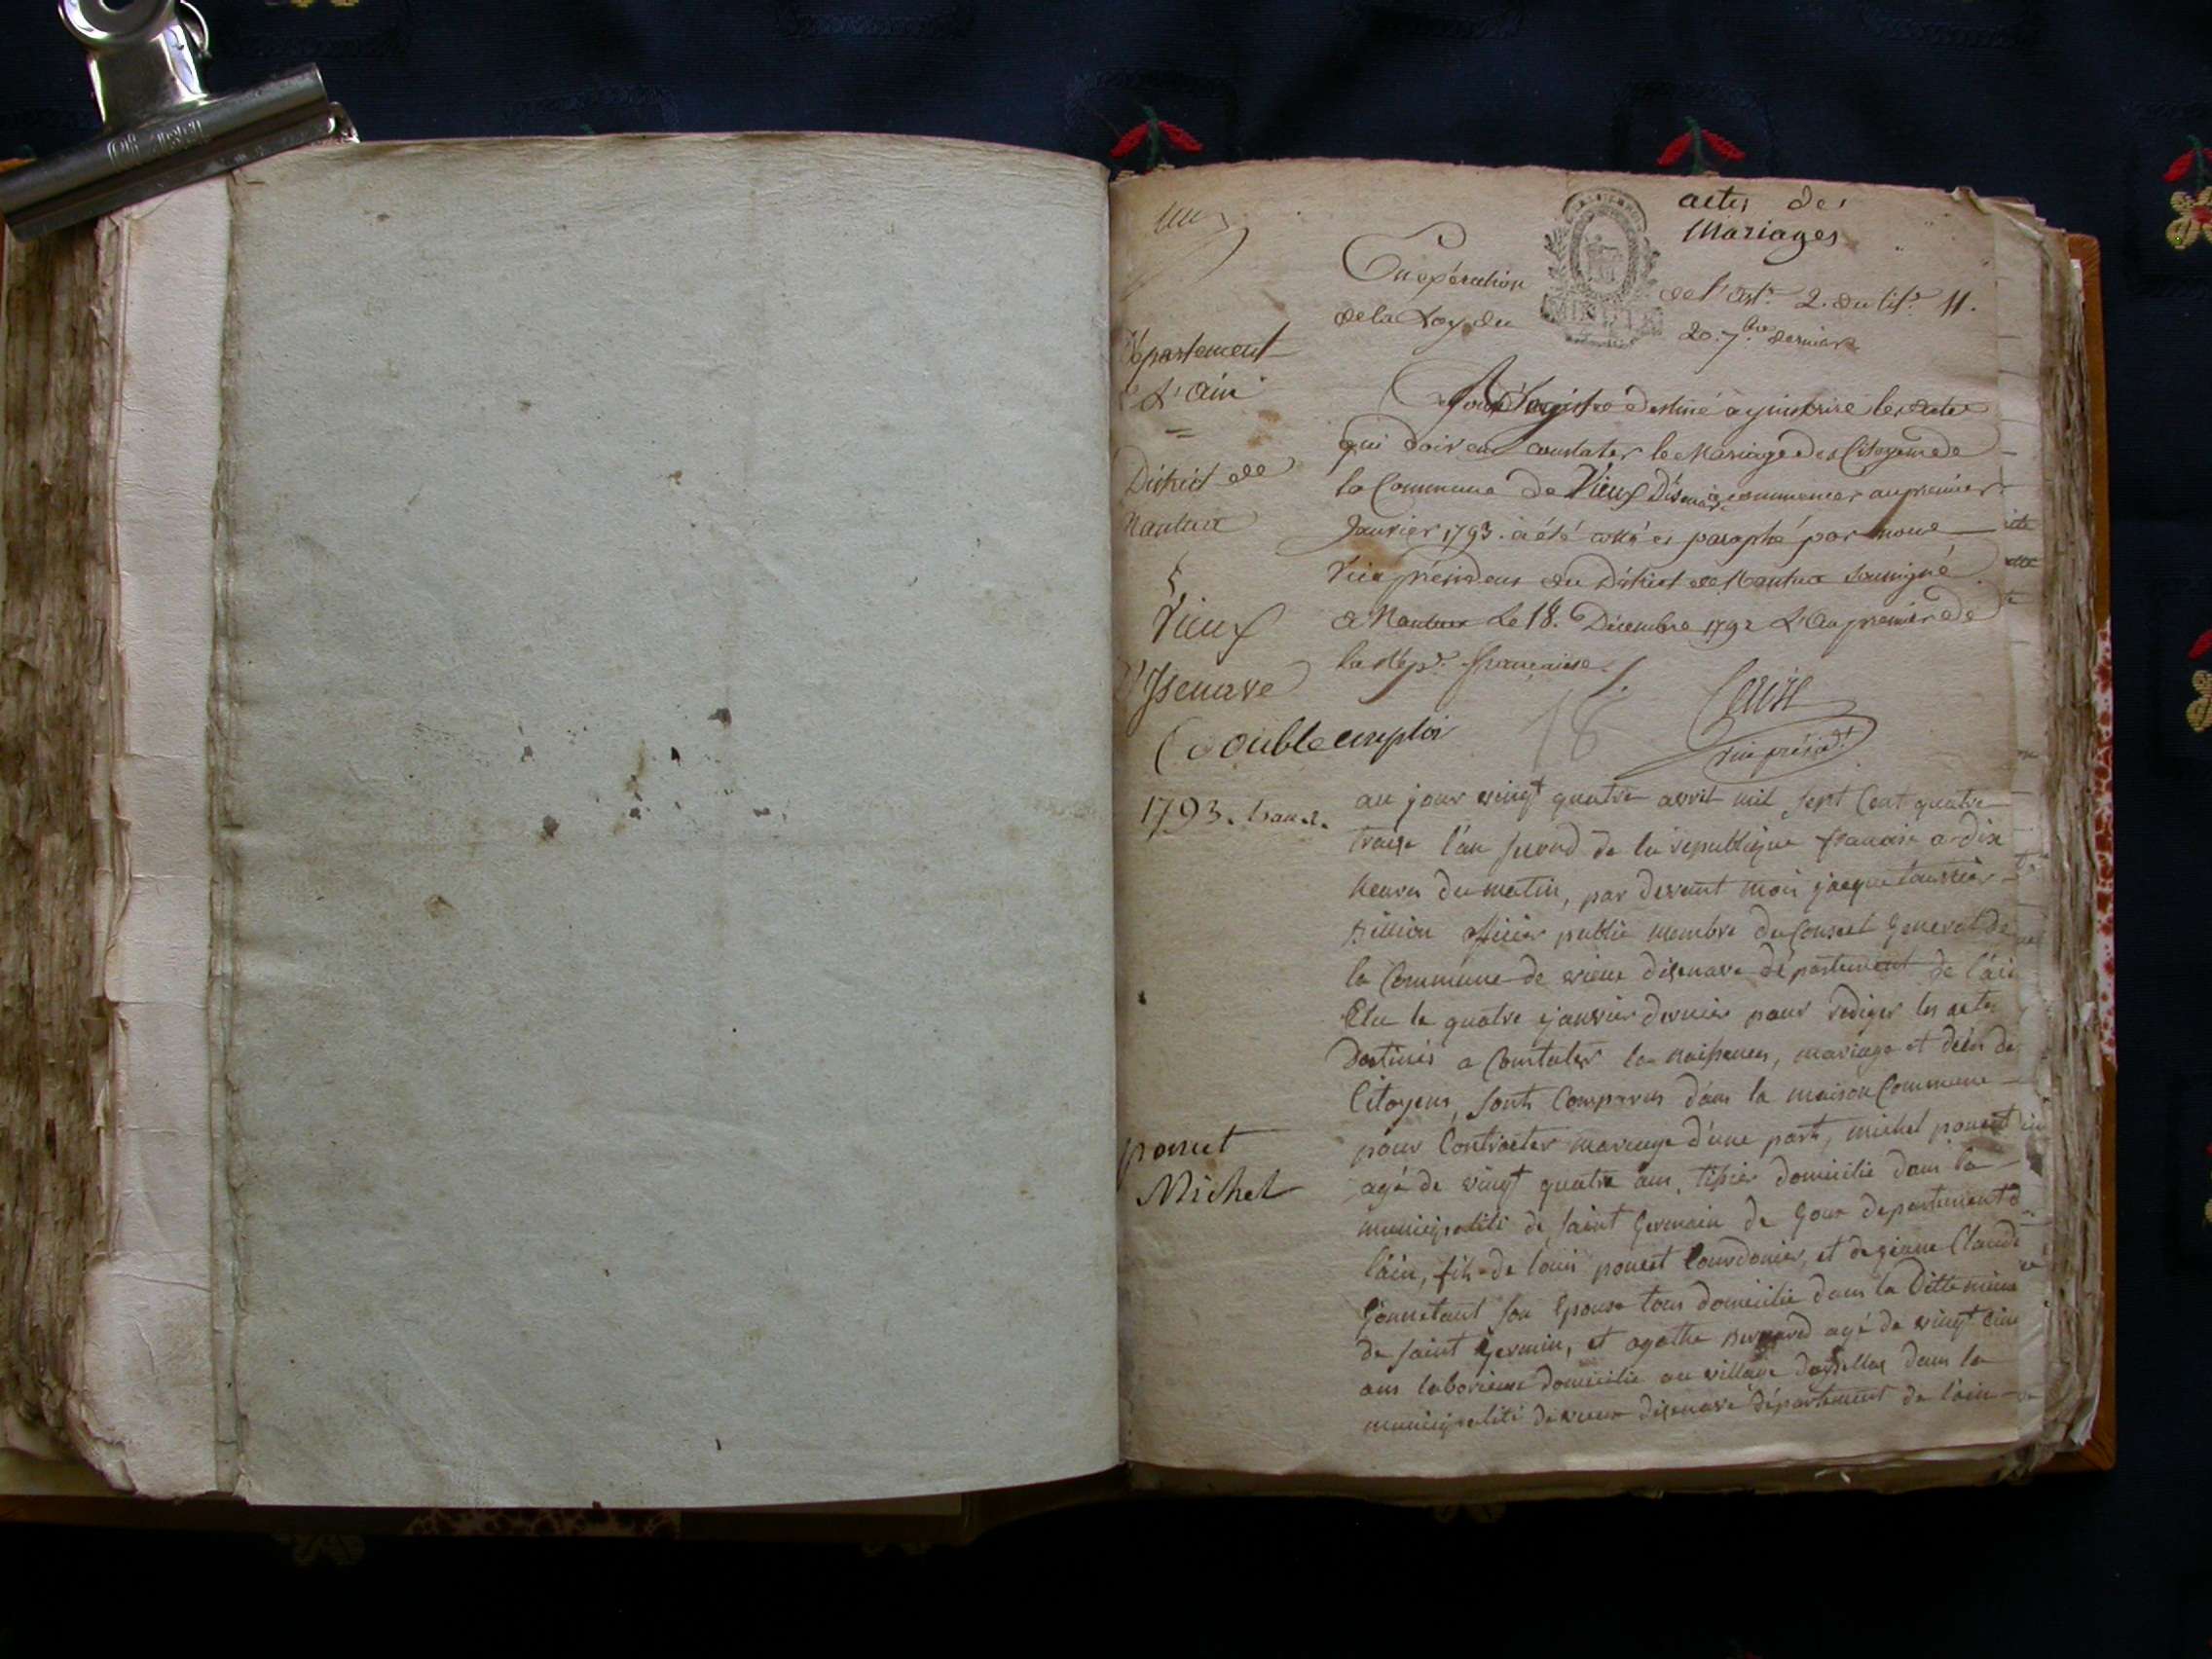 actes des
Mariages
En exécution de l'art. 2. du tit. 11.
de la Loy du 20. 7.bre dernier
Département
L'Ain
District de
Nantua
Vieux
D'Isenave
registre destiné a y inscrire les actes
qui doivent constater le Mariage des Citoyens de
la Commune de Vieux Disenave a commencer au premier
Janvier 1793. a été cotté et paraphé par nous
Vice président du District de Nantua soussigné
a Nantua Le 18. Décembre 1792 L'an premier de
la Rép.e française.
vice présid.t
(double emploi
18
1793.
au jour vingt quatre avril mil sept Cent quatre
treize l'an second de la republique francaise a dix
heures du matin, par devant moi jacque
officier public membre du Conseil General de
la Commune de vieux disenave département de l'ain
Elu le quatre janvier dernier pour rediger les actes
destinés a Constater la naissances, mariage et décés des
Citoyens, sonts Comparus dans la maison Commune
poncet
Michel
pour Contracter mariage d'une part, michel poncet
agé de vingt quatre ans, tissier domicilie dans la
municipalité de saint Germain de Joux departement d
l'ain, fils de louis poncet Courdonier, et de jeanne Claude
son Epouse tous domicilie dans la Ditte
de saint Germin, et agathe agé de vingt cinq
ans laborieuse domicilie au village dans la
municipalité de vieux disenave département de l'ain